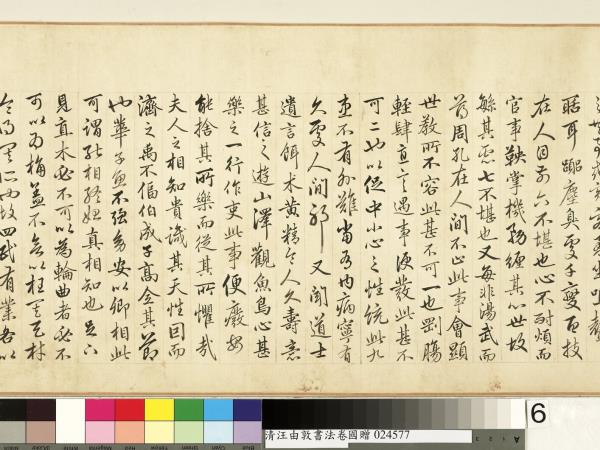 聒耳囂塵臭處千變百技
在人目前六不堪也心不耐煩而
官事鞅掌機務纏其心世故
繁其慮七不堪也又每非湯武而
薄周孔在人間不止此事會顯
世教所不容此甚不可一也剛腸
輕肆直言遇事便發此甚不
可二也以促中小心之性統此九
患不有外難當有內病寧有
久處人間邪又聞道士
遺言餌朮黃精令人久壽意
甚信之遊山澤觀魚鳥心甚
樂之一行作吏此事便廢安
能捨其所樂而從其所懼哉
夫人之相知貴識其天性因而
濟之禹不偪伯成子高全其節
也華子魚不強幼安以卿相此
可謂能相終始真相知也足下
見直木必不可以為輪曲者必不
可以為桷蓋不欲以枉其天材
令得其所也故四民有業各以
清汪由敦書法卷國贈 024577
6